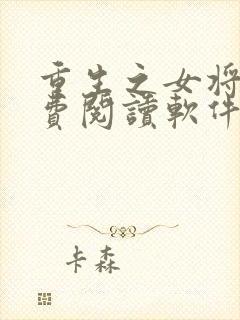 重生之女将
費閱讀軟件
卡森